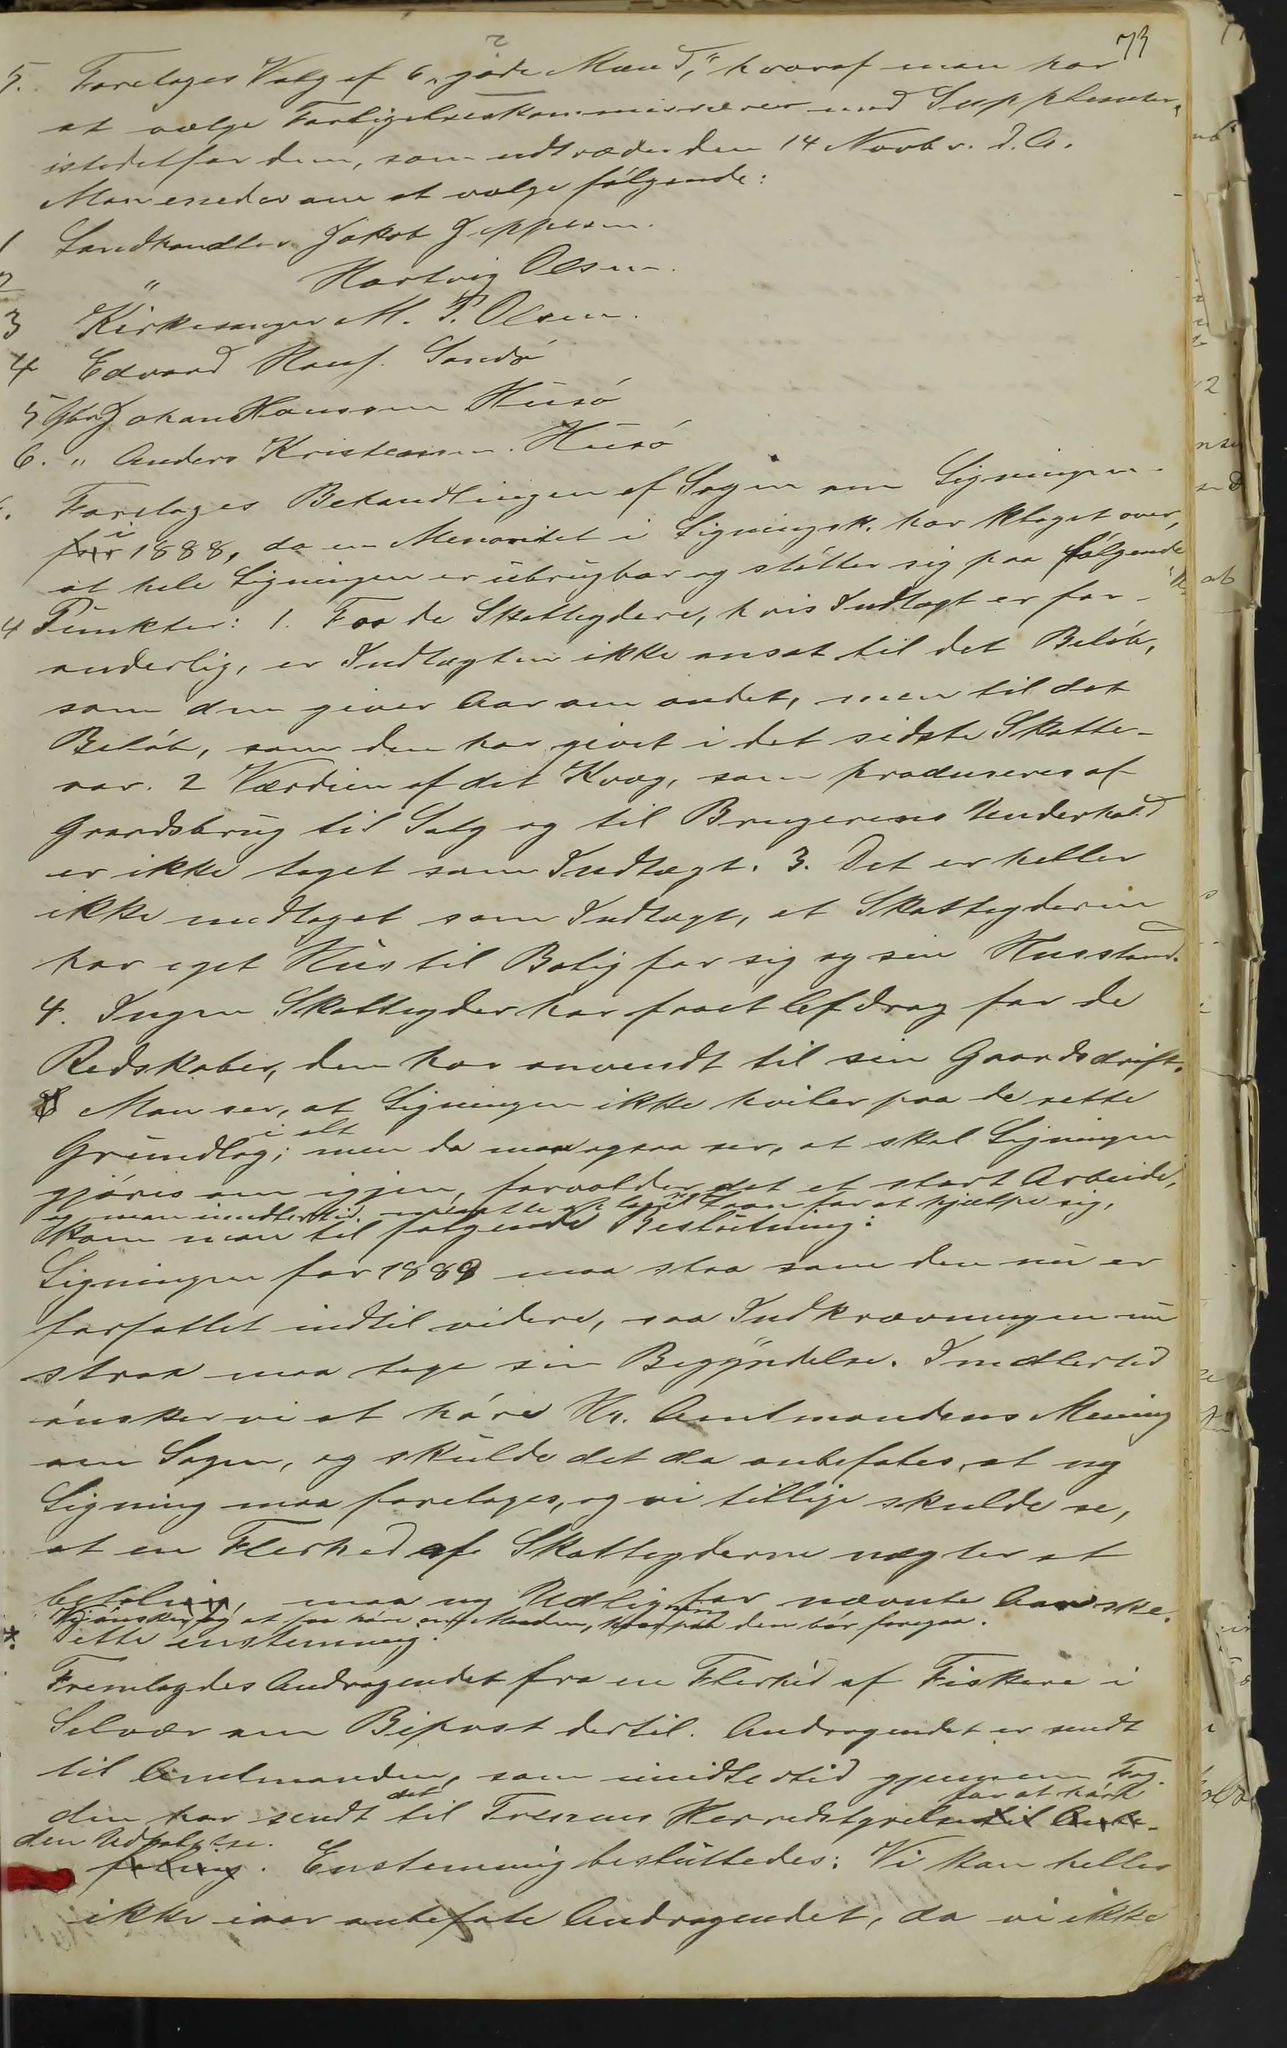 73
5. Foretages Valg af 6 "gode Mænd", hvoraf man har
at vælge Forligelseskommissærer med Supplianter,
istedetfor dem, som udtræder den 14 Novbr. d. A.
Man enedes om at vælge følgende:
1 Landhandler Jakob Jeppesen.
2 " Hartvig Olsen.
3 Kirkesanger M. P. Olsen.
4 Edvard Hans. Sandø
5 Gbr. Johan Hanssen Husø
6. " Anders Kristensen. Husø
6. Foretages Behandlingen af Sagen om Ligningen
for i 1888, da en Menoritet i Ligningsk. har klaget over,
at hele Ligningen er ubrugbar og støtter sig paa følgende
4 Punkter: 1. Fos de Skatteydere, hvis Indtægt er for-
anderlig, er Indtægten ikke ansat til det Beløb,
som den giver Aar om andet, men til det
Beløb, som den har givet i det sidste Skatte-
aar. 2 Værdien af det Kvæg, som produseres af
Gaardsbrug til Salg og til Brugerens Underhold
er ikke taget som Indtægt. 3. Det er heller
ikke medtaget som Indtægt, at Skatteyderen
har eget Hus til Bolig for sig og sin Husstand.
4. Ingen Skatteyder har faaet Afdrag for de
Redskaber, den har anvendt til sin Gaardsdrift.
Man ser, at Ligningen ikke hviler paa de rette
Grundlag i alt; men da man ogsaa ser, at skal Ligningen
gjøres om igjen, forvolder det et stort Arbeide,
og man imidlertid maatte optage Laan for at hjælpe sig,
kom man til følgende Beslutning:
Ligningen for 1888 maa staa som den nu er
forfattet indtil videre, saa Indkrævningen nu
strax maa tage sin Begyndelse. Imidlertid
ønsker vi at høre Hr. Amtmandens Mening
om Sagen, og skulde det da anbefales, at ny
Ligning maa foretages, og vi tillige skulde se,
at en Flerhed af Skatteyderne nægter at
betale, maa ny Udligning for nævnte Aar ske.
Vi ønsker og at faa høre om Maaden, hvorpaa den bør foregaa.
* Dette enstemmig.
Fremlagdes Andragendet fra en Flerhed af Fiskere i
Selvær om Bipost dertil. Andragendet er sendt
til Amtmanden, som imidlertid gjennem Fog-
den har sendt det til Trænens Herredstyrelse for at høre til Anbe-
den Udtalelse. faling. Enstemmig besluttedes: Vi kan heller
ikke iaar anbefale Andragendet, da vi ikke